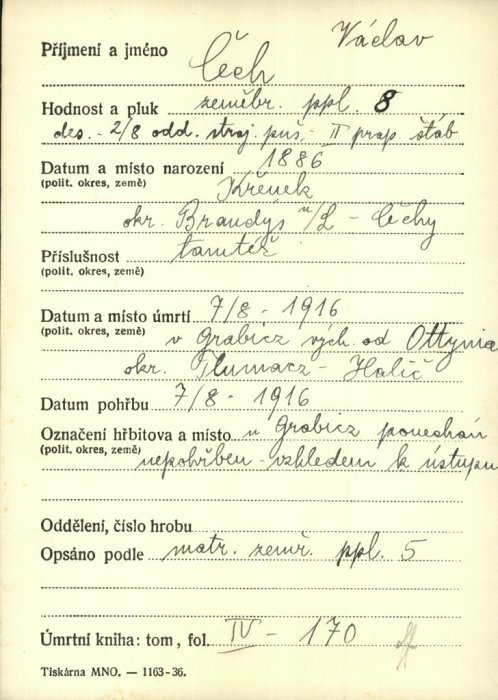 Václav
Příjmení a jméno Čech
Hodnost a pluk zeměbr. ppl. 8
des. - 2/8 odd. stroj. puš. - II prap. štáb
Datum a místo narození 1886
(polit. okres, země) Křenek
okr. Brandýs n/L - Čechy
Příslušnost tamtéž
(polit. okres, země)
Datum a místo úmrtí 7/8 - 1916
(polit. okres, země) v Grabicz vých. od Ottynia
okr. Tlumacz - Halič
Datum pohřbu 7/8 - 1916
Označení hřbitova a místo u Grabicz ponechán
(polit. okres, země) nepohřben - vzhledem k ústupu
Oddělení, číslo hrobu
Opsáno podle matr. zemř. ppl. 5
Úmrtní kniha: tom, fol. IV - 170
Tiskárna MNO. — 1163-36.